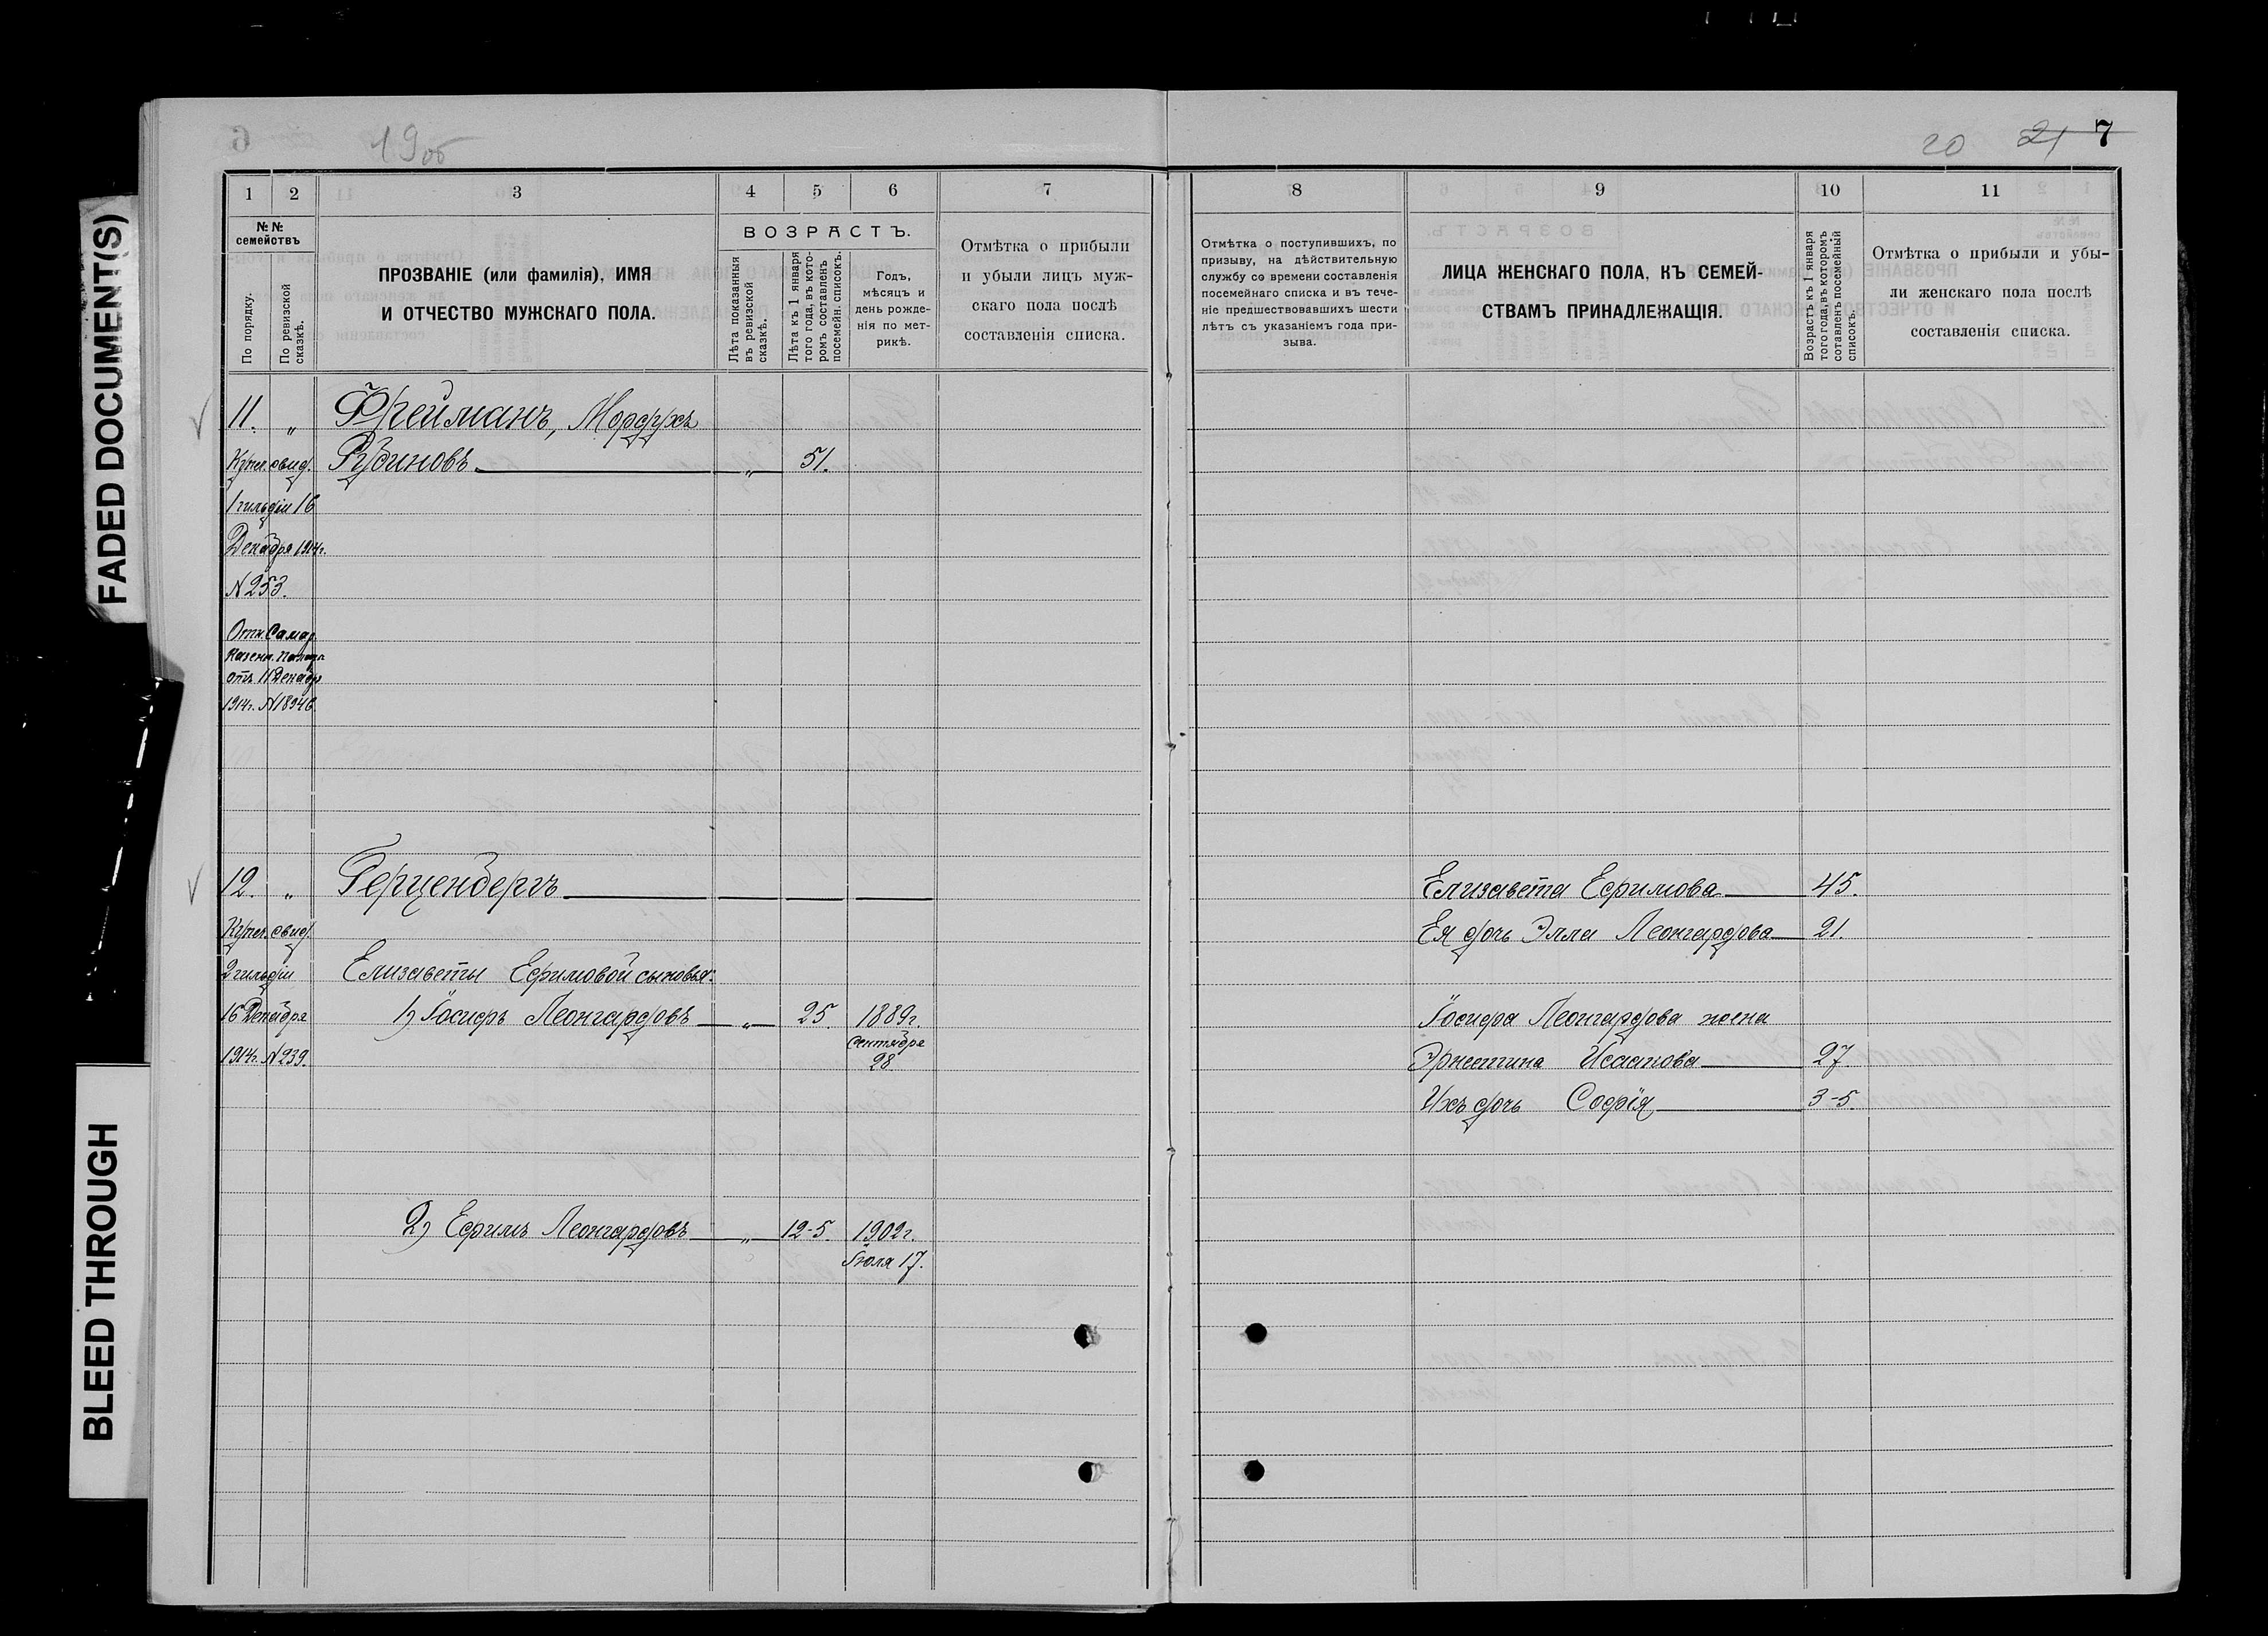 FADED DOCUMENT(S)
BLEED THROUGH
19 об
1 2 3 4 5 6 7
№ № семействъ
По порядку.
По ревизской сказкѣ.
ПРОЗВАНІЕ (или фамилія), ИМЯ
И ОТЧЕСТВО МУЖСКАГО ПОЛА.
ВОЗРАСТЪ.
Лѣта показанныя
въ ревизской
сказкѣ.
Лѣта къ 1 января
того года, въ кото-
ромъ составленъ
посемейн. списокъ.
Годъ,
мѣсяцъ и
день рожде-
нія по мет-
рикѣ.
Отмѣтка о прибыли
и убыли лицъ муж-
скаго пола послѣ
составленія списка.
11. „ Фрейманъ, Мордухъ
Купеч. свид. Рубиновъ „ 51.
1 гильдіи 16
Декабря 1914г.
N 253.
Отн. Самар.
Казенн. Палаты
отъ 11 Декабр
1914г. N 18946.
12. „ Герценбергъ
Купеч. свид.
2 гильдіи Елизаветы Ефимовой сыновья:
16 Декабря 1) Іосифъ Леонгардовъ „ 25. 1889г.
Сентября
1914г. N 239. 28.
2) Ефимъ Леонгардовъ „ 12-5. 1902г.
Іюля 17.
20 21 7
8 9 10 11
Отмѣтка о поступившихъ, по
призыву, на дѣйствительную
службу со времени составленія
посемейнаго списка и въ тече-
ніе предшествовавшихъ шести
лѣтъ съ указаніемъ года при-
зыва.
ЛИЦА ЖЕНСКАГО ПОЛА, КЪ СЕМЕЙ-
СТВАМЪ ПРИНАДЛЕЖАЩІЯ.
Возрастъ къ 1 января
того года, въ которомъ
сотавленъ посемейный
списокъ.
Отмѣтка о прибыли и убы-
ли женскаго пола послѣ
составленія списка.
Елизавета Ефимова 45.
Ея дочь Элла Леонгардова 21.
Іосифа Леонгардова жена
Эрнестина Исаакова 27.
Ихъ дочь Софія 3-5.